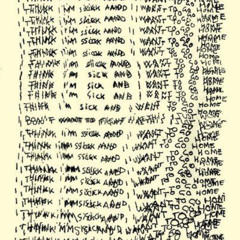 THINK I'M SICK AND I WANT TO GO HOME
THINK I'M SICK AND I WANT TO GO HOME
THINK I'M SICK AND I WANT TO GO HOME
THINK I'M SICK AND I WANT TO GO HOME
THINK I'M SICK AND I WANT TO GO HOME
THINK I'M SICK AND I WANT TO GO HOME
THINK I'M SICK AND I WANT TO GO HOME
I THINK I'M SICK AND I WANT TO GO HOME
I DON'T WANT TO FIGHT AT HOME
I THINK I'M SICK AND I WANT TO GO HOME
I THINK I'M SICK AND I WANT TO GO HOME
I THINK I'M SICK AND I WANT TO GO HOME
I THINK I'M SICK AND I WANT TO GO HOME
I THINK I'M SICK AND I WANT TO GO HOME
I THINK I'M SICK AND I WANT TO GO HOME
I THINK I'M SICK AND I WANT TO GO HOME
I THINK I'M SICK AND I WANT TO GO HOME